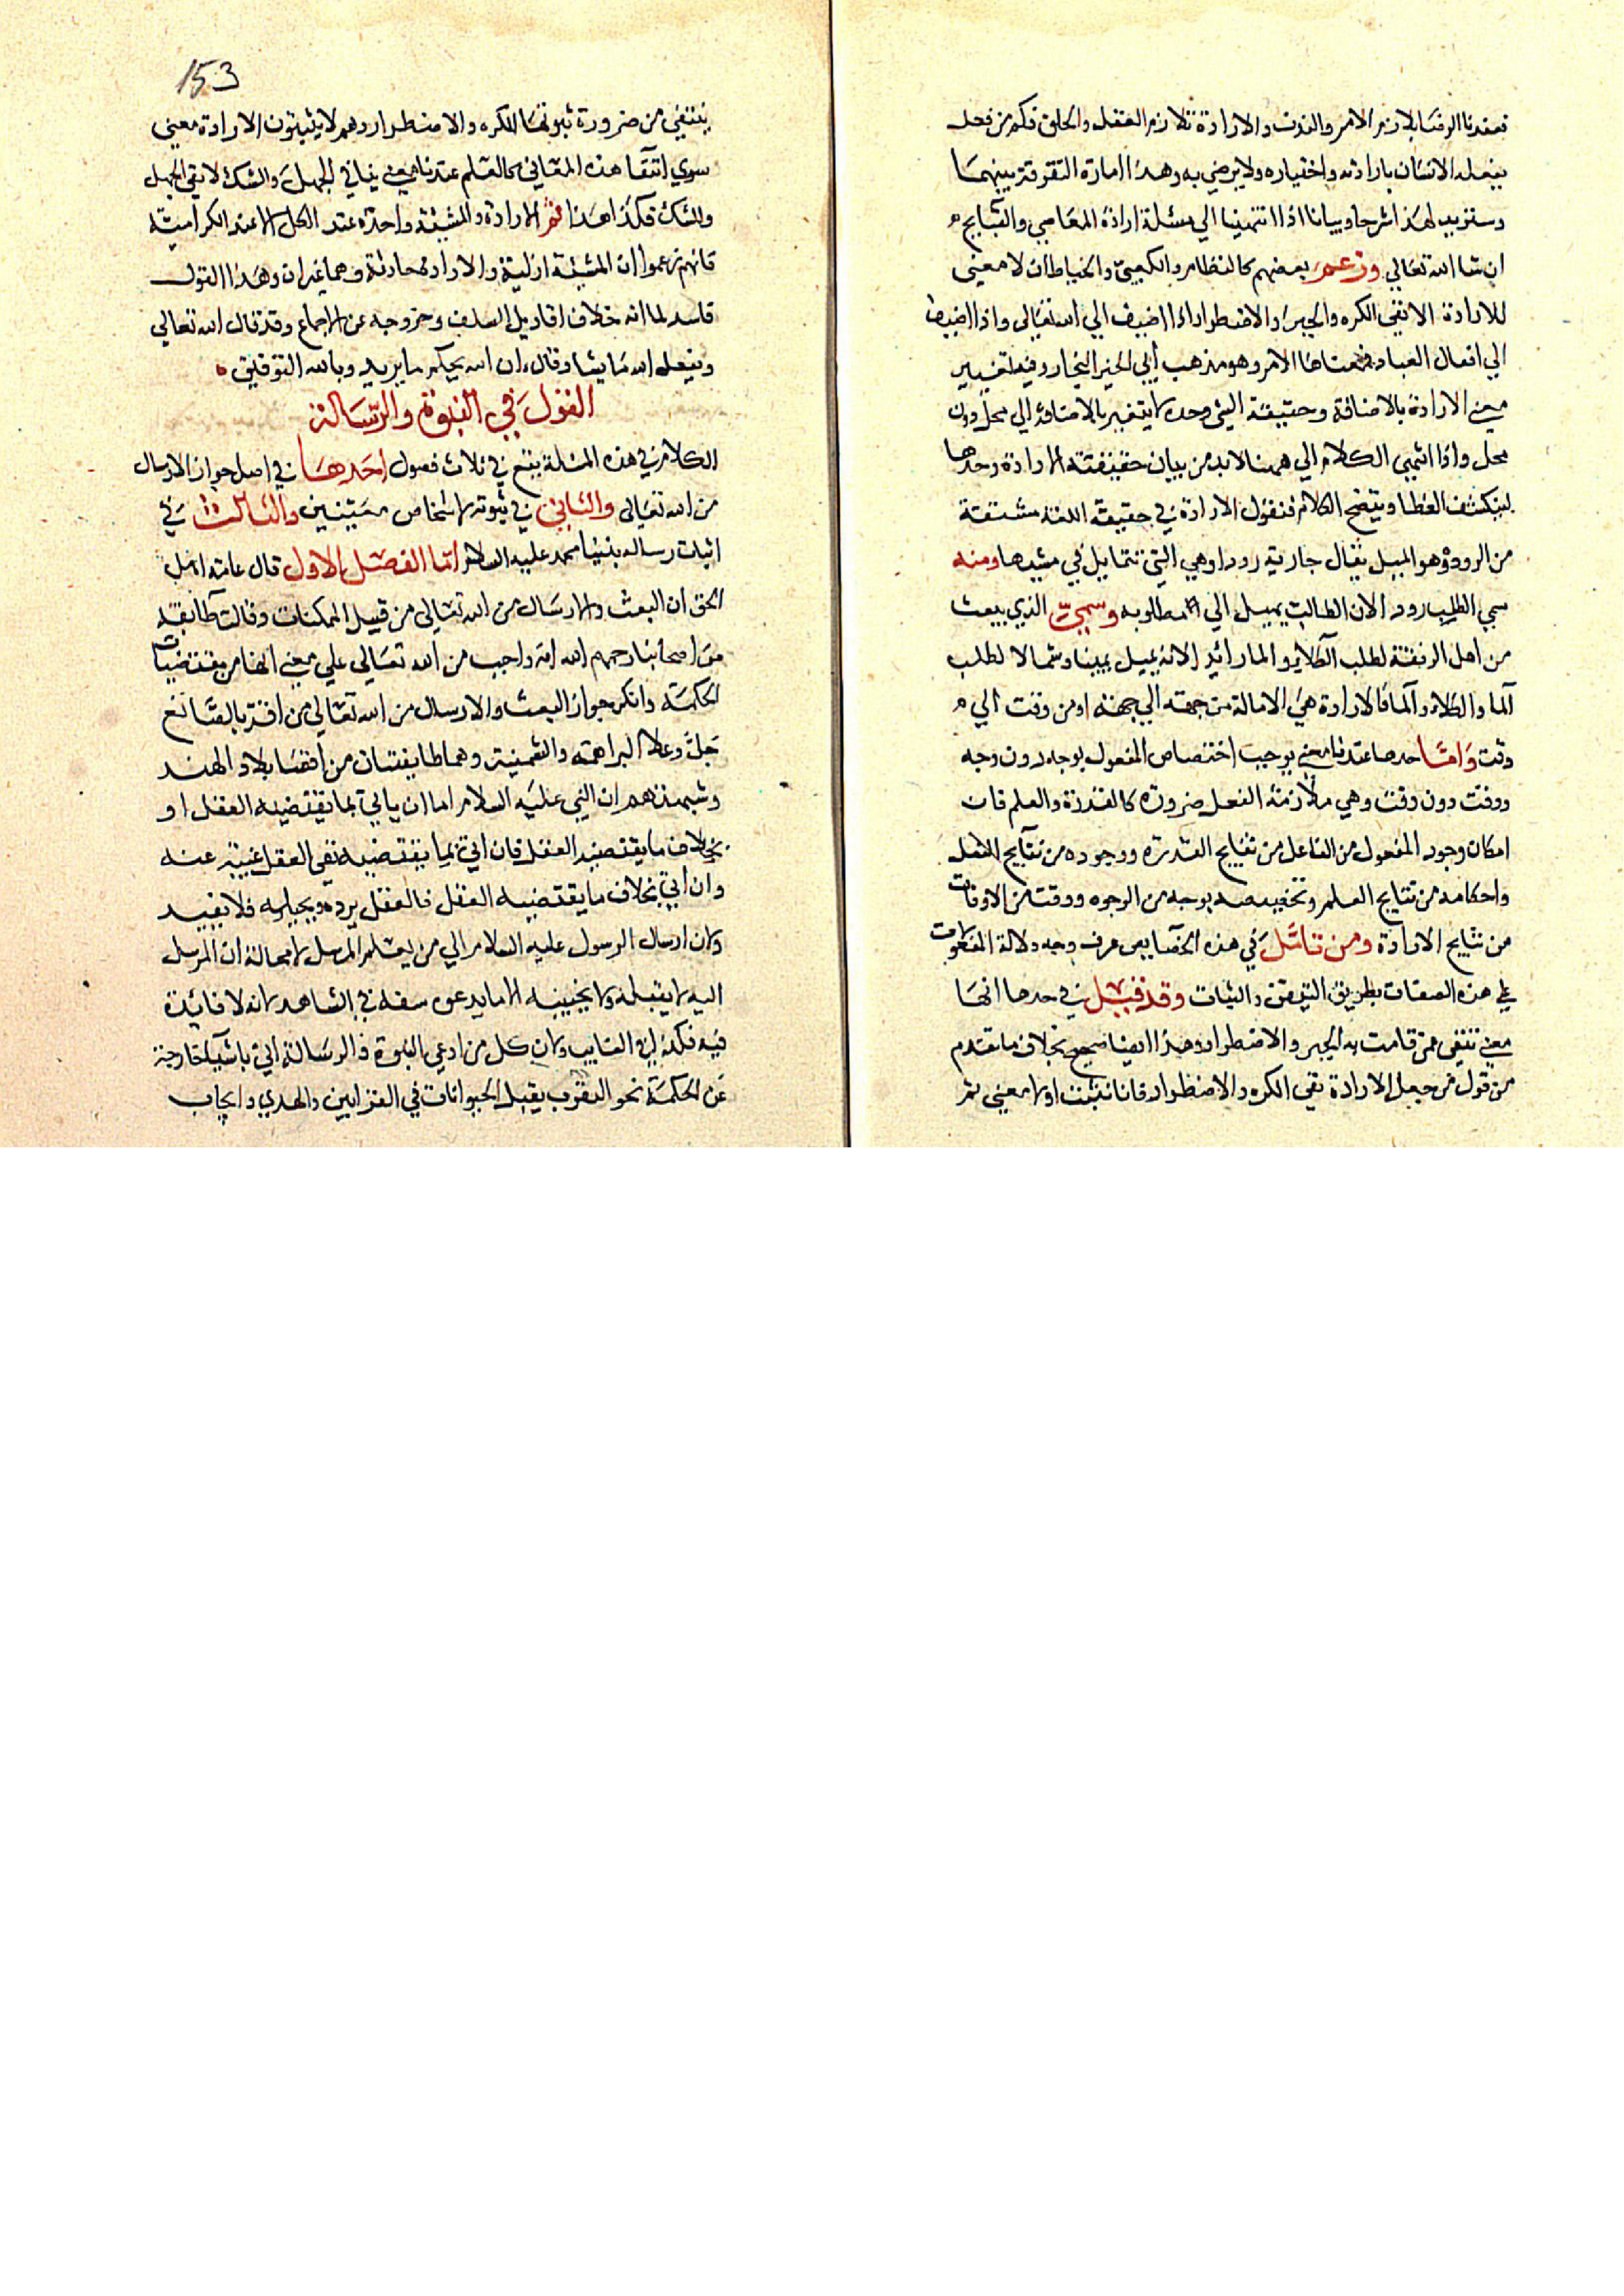 فعندنا الرضا يلازم الامر والندب والارادة تلازم الفعل والخلق فكم من فعل
يفعله الانسان بارادته واختياره ولا يرضي به وهذا امارة التفرقة بينهما
وسنزيد لهذا شرحا وبيانا اذا انتهينا الي مسئلة ارادة المعاصي والقبايح
ان شا الله تعالي وزعم بعضهم كالنظام والكعبي والخياط ان لا معني
للارادة الا نفي الكره والجبر والاضطرار اذا اضيف الي الله تعالي واذا اضيف
الي افعال العباد فمعناها الامر وهو مذهب ابي الحسين النجار وفيه تغيير
معني الارادة بالاضافة وحقيقة الشي وحده لا يتغير بالاضافة الي محل دون
محل واذا انتهي الكلام الي ههنا لابد من بيان حقيقته الارادة وحدها
لينكشف الغطا ويتضح الكلام فنقول الارادة في حقيقة اللغة مشتقة
من الرود وهو الميل يقال جارية رودا وهي التي تتمايل في مشيها ومنه
سمي الطلب رودا لان الطالب يميل الي مطلوبه وسمي الذي يبعث
من اهل الرفقة لطلب الكلا والما رائدا لانه يميل يمينا وشمالا لطلب
الما والكلا فالارادة هي الامالة من جهته الي جهته او من وقت الي
وقت واما حدها عندنا معني يوجب اختصاص المفعول بوجه دون وجه
ووقت دون وقت وهي ملازمة الفعل ضرورة كالقدرة والعلم فان
امكان وجود المفعول من الفاعل من نتايج القدرة ووجوده من نتايج الفعل
واحكامه من نتايج العلم وتخصيصه بوجه من الوجوه ووقت من الاوقات
من نتايج الارادة ومن تامل في هذه الخصايص عرف وجه دلالة المفعولات
علي هذه الصفات بطريق التيقن والثبات وقد قيل في حدها انها
معني تنفي عمن قامت به الجبر والاضطرار وهذا ايضا صحيح بخلاف ما تقدم
من قول من جعل الارادة نفي الكره والاضطرار فانا نثبت اولا معني ثم
153
ينتفي من ضرورة ثبوتها الكره والاضطرار وهم لا يثبتون الارادة معني
سوي انتقا هذه المعاني كالعلم عندنا معني ينافي الجهل والشك لا نفي الجهل
والشك فكذا هذا ثم الارادة والمشيئة واحدة عند الكل الا عند الكرامية
فانهم زعموا ان المشيئة ازلية والارادة حادثة وهما غيران وهذا القول
فاسد لما انه خلاف اقاويل السلف وخروجه عن الاجماع وقد قال الله تعالي
ويفعل الله ما يشا وقال ان الله يحكم ما يريد وبالله التوفيق
القول في النبوة والرسالة
الكلام في هذه المسئلة يقع في ثلاث فصول احدها في اصل جواز الارسال
من الله تعالى والثاني في ثبوته لاشخاص معينين والثالث في
اثبات رساله نبينا محمد عليه السلام اما الفصل الاول قال عامة اهل
الحق ان البعث والارسال من الله تعالي من قبيل الممكنات وقالت طايفة
من اصحابنا رحمهم الله انه واجب من الله تعالي علي معني انها من مقتضيات
الحكمة وانكر جواز البعث والارسال من الله تعالي من اقر بالصانع
جل وعلا البراهمة والسمنية وهما طايفتان من اقصا بلاد الهند
وشبهتهم ان النبي عليه السلام اما ان ياتي بما يقتضيه العقل او
بخلاف ما يقتضيه العقل فان اتي بما يقتضيه نفي العقل غنية عنه
وان اتي بخلاف ما يقتضيه العقل فالعقل يرده ويحيله فلا يفيد
ولان ارسال الرسول عليه السلام الي من يعلم المرسل لا محالة ان المرسل
اليه لا يقبله ولا يجيبه الا ما يدعو سفه في الشاهد لانه لا فائدة
فيه فكذا في الغايب ولان كل من ادعي النبوة والرسالة اتي باشيا خارجة
عن الحكمة نحو التقرب بقتل الحيوانات في القرابين والهدي وايجاب